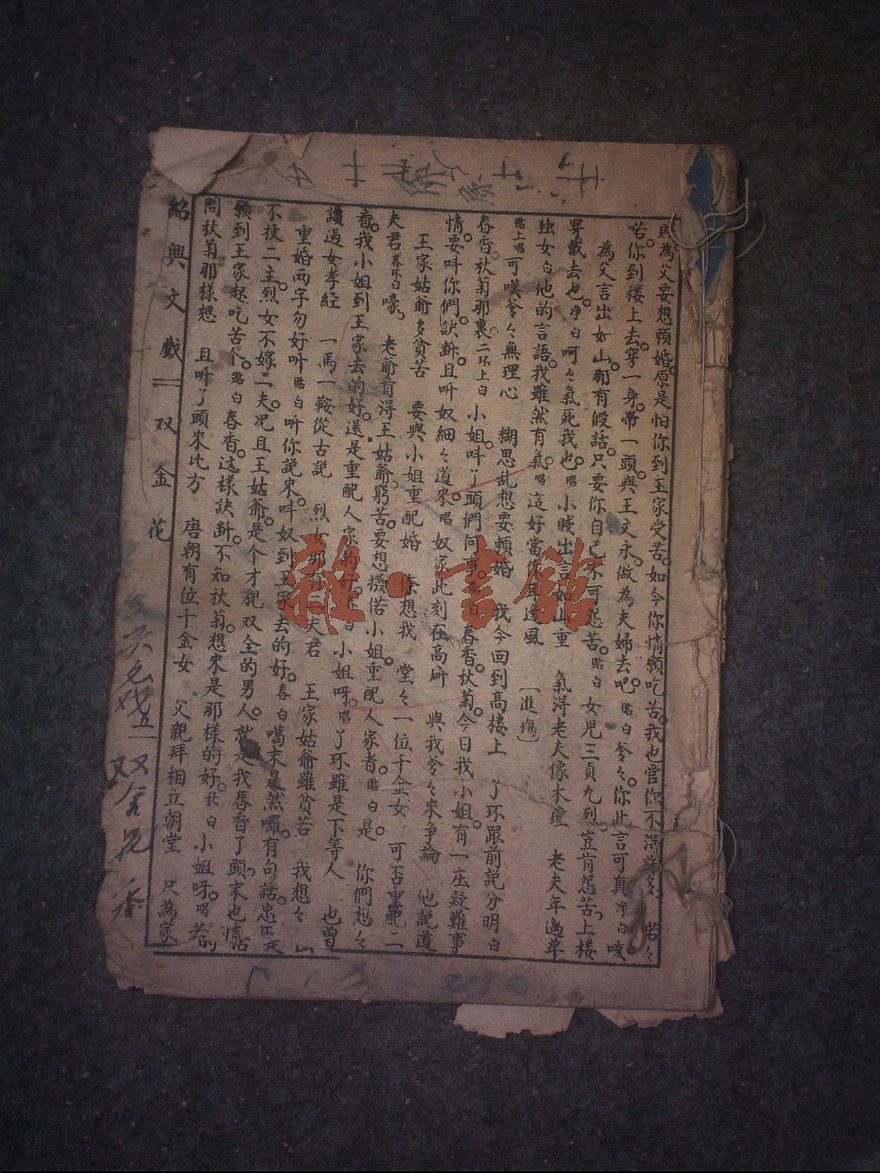 為父要想賴婚原是怕你到王家受苦。如今你情願吃苦。我也管你不得許多 喏々
喏。你到楼上去。穿一身。帶一頭。與王文永。做為夫婦去吧 貼白 爹々。你此言可真 净白 咳
為父言出如山。那有假話。只要你自己不可怨苦。貼白 女児三貞九烈。豈肯怨苦。上楼
穿戴去也。净白 呵々氣死我也。唱 小賤出言如山重 氣淂老夫像木 老夫年過單
独女 白 他的言語。我雖然有氣。唱 這好當作耳邊風 〔進場〕
貼上唱 可嘆爹々無理心 糊思乱想要賴婚 我今回到高楼上 了环跟前説分明 白
春香。秋菊那裏。二环上白 小姐。呌了頭們何事。春香。秋菊。今日我小姐。有一座疑難事
情。要呌你們。訣断。且听奴細々道來。唱 奴家此刻在高所 與我爹々來爭論 他説道
王家姑爺多貧苦 要與小姐重配婚 我 堂々一位千金女 可否重配二
夫君 春环白 嚎。老爺有淂王姑爺。窮苦。要想撥偌小姐。重配人家者。貼白 是 你們想々
看。我小姐到王家去的好。還是重配人家的好。白 小姐呀。唱 了环雖是下等人 也曾
讀過女孝經 一馬一鞍從古説 烈女那有二夫君 王家姑爺雖貧苦 我想々
重婚两字勿好听 貼白 听你説來。呌奴到王家去的好。春白 噶末是然囉。有句話。忠臣
不扶二主。烈女不嫁二夫。况且王姑爺。是个才貌双全的男人。就是我春香了頭。末也情
願到王家起吃苦个。貼白 春香。這樣訣断。不知秋菊。想來是那樣的好。秋白 小姐呀。唱 若
問秋菊那樣想 且听了頭來比方 唐朝有位千金女 父親拜相立朝堂 只為
紹興文戲 双金花
双金花
雜·書館